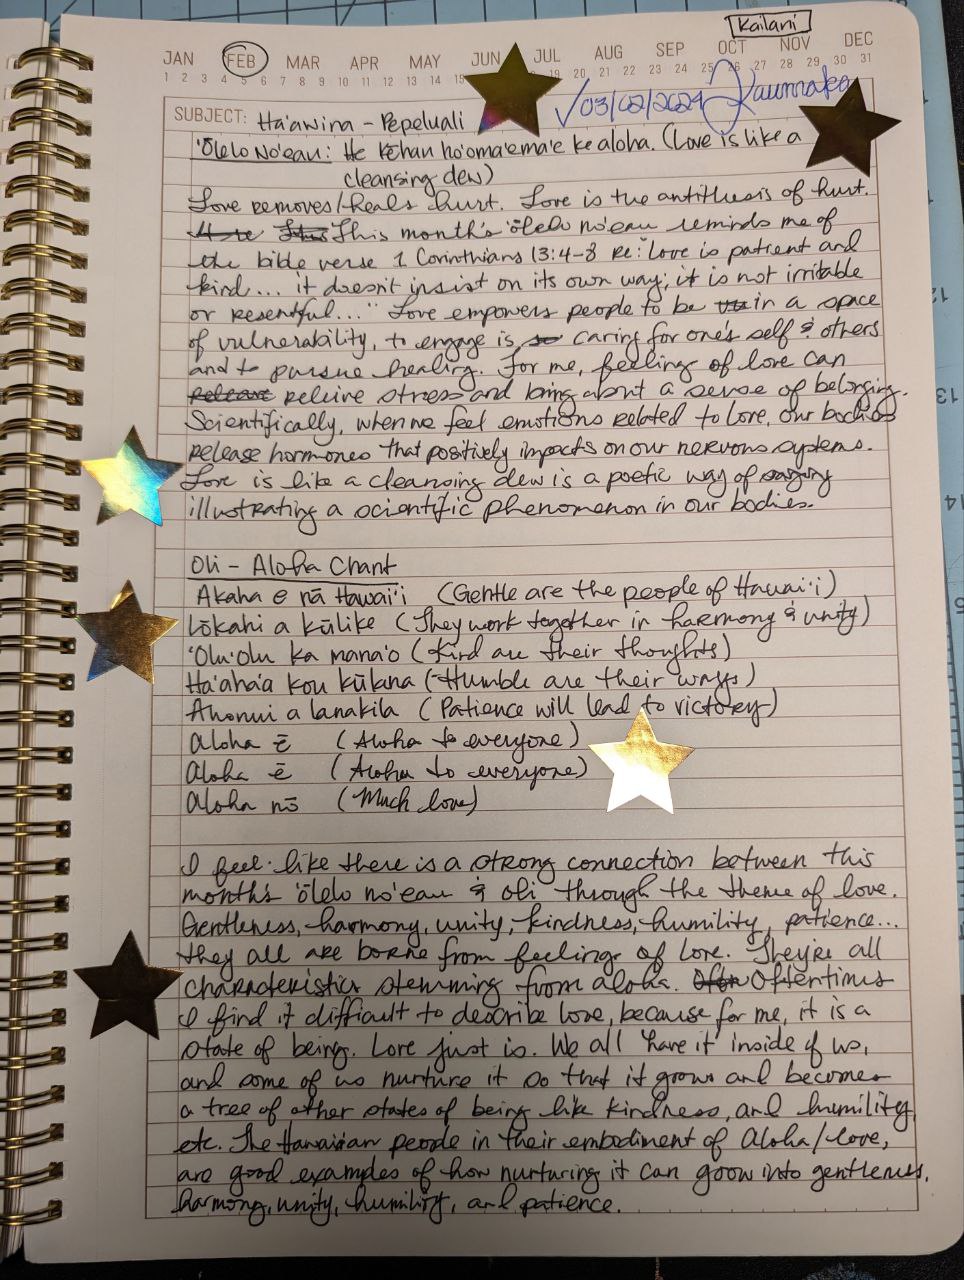 Kailani
JAN FEB MAR APR MAY JUN JUL AUG SEP OCT NOV DEC
1 2 3 4 5 6 7 8 9 10 11 12 13 14 15 19 20 21 22 23 24 25 26 27 28 29 30 31
✓03/02/2024
SUBJECT: Ha'awina - Pepeluali
'Ōlelo No'eau: He kēhau ho'oma'ema'e ke aloha. (Love is like a
cleansing dew)
Love removes/heals hurt. Love is the antithesis of hurt.
This month's 'ōlelo no'eau reminds me of
the bible verse 1 Corinthians 13:4-8 Re: "Love is patient and
kind... it doesn't insist on its own way; it is not irritable
or resentful..." Love empowers people to be in a space
of vulnerability, to engage is caring for one's self & others
and to pursue healing. For me, feelings of love can
release relieve stress and bring about a sense of belonging.
Scientifically, when we feel emotions related to love, our bodies
release hormones that positively impacts on our nervous systems.
Love is like a cleansing dew is a poetic way of saying
illustrating a scientific phenomenon in our bodies.
Oli - Aloha Chant
Akaha e nā Hawai'i (Gentle are the people of Hawai'i)
Lōkahi a kūlike (They work together in harmony & unity)
'Olu'olu ka mana'o (Kind are their thoughts)
Ha'aha'a kou kūlana (Humble are their ways)
Ahonui a lanakila (Patience will lead to victory)
Aloha ē (Aloha to everyone)
Aloha ē (Aloha to everyone)
Aloha nō (Much love)
I feel like there is a strong connection between this
month's 'ōlelo no'eau & oli through the theme of love.
Gentleness, harmony, unity, kindness, humility, patience...
they all are borne from feelings of love. They're all
characteristics stemming from aloha. Often Oftentimes
I find it difficult to describe love, because for me, it is a
state of being. Love just is. We all have it inside of us,
and some of us nurture it so that it grows and becomes
a tree of other states of being like kindness, and humility,
etc. The Hawaiian people in their embodiment of Aloha/love,
are good examples of how nurturing it can grow into gentleness,
harmony, unity, humility, and patience.